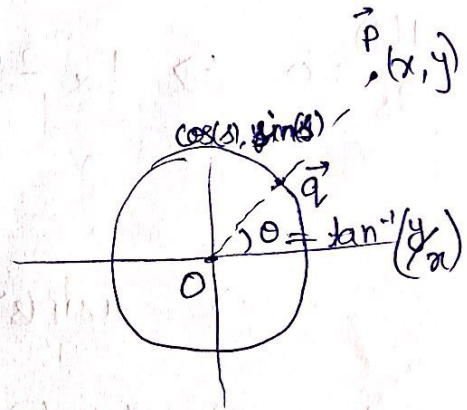 →
P
(x, y)
cos(s), sin(s)
→
q
θ = tan⁻¹(y/x)
O